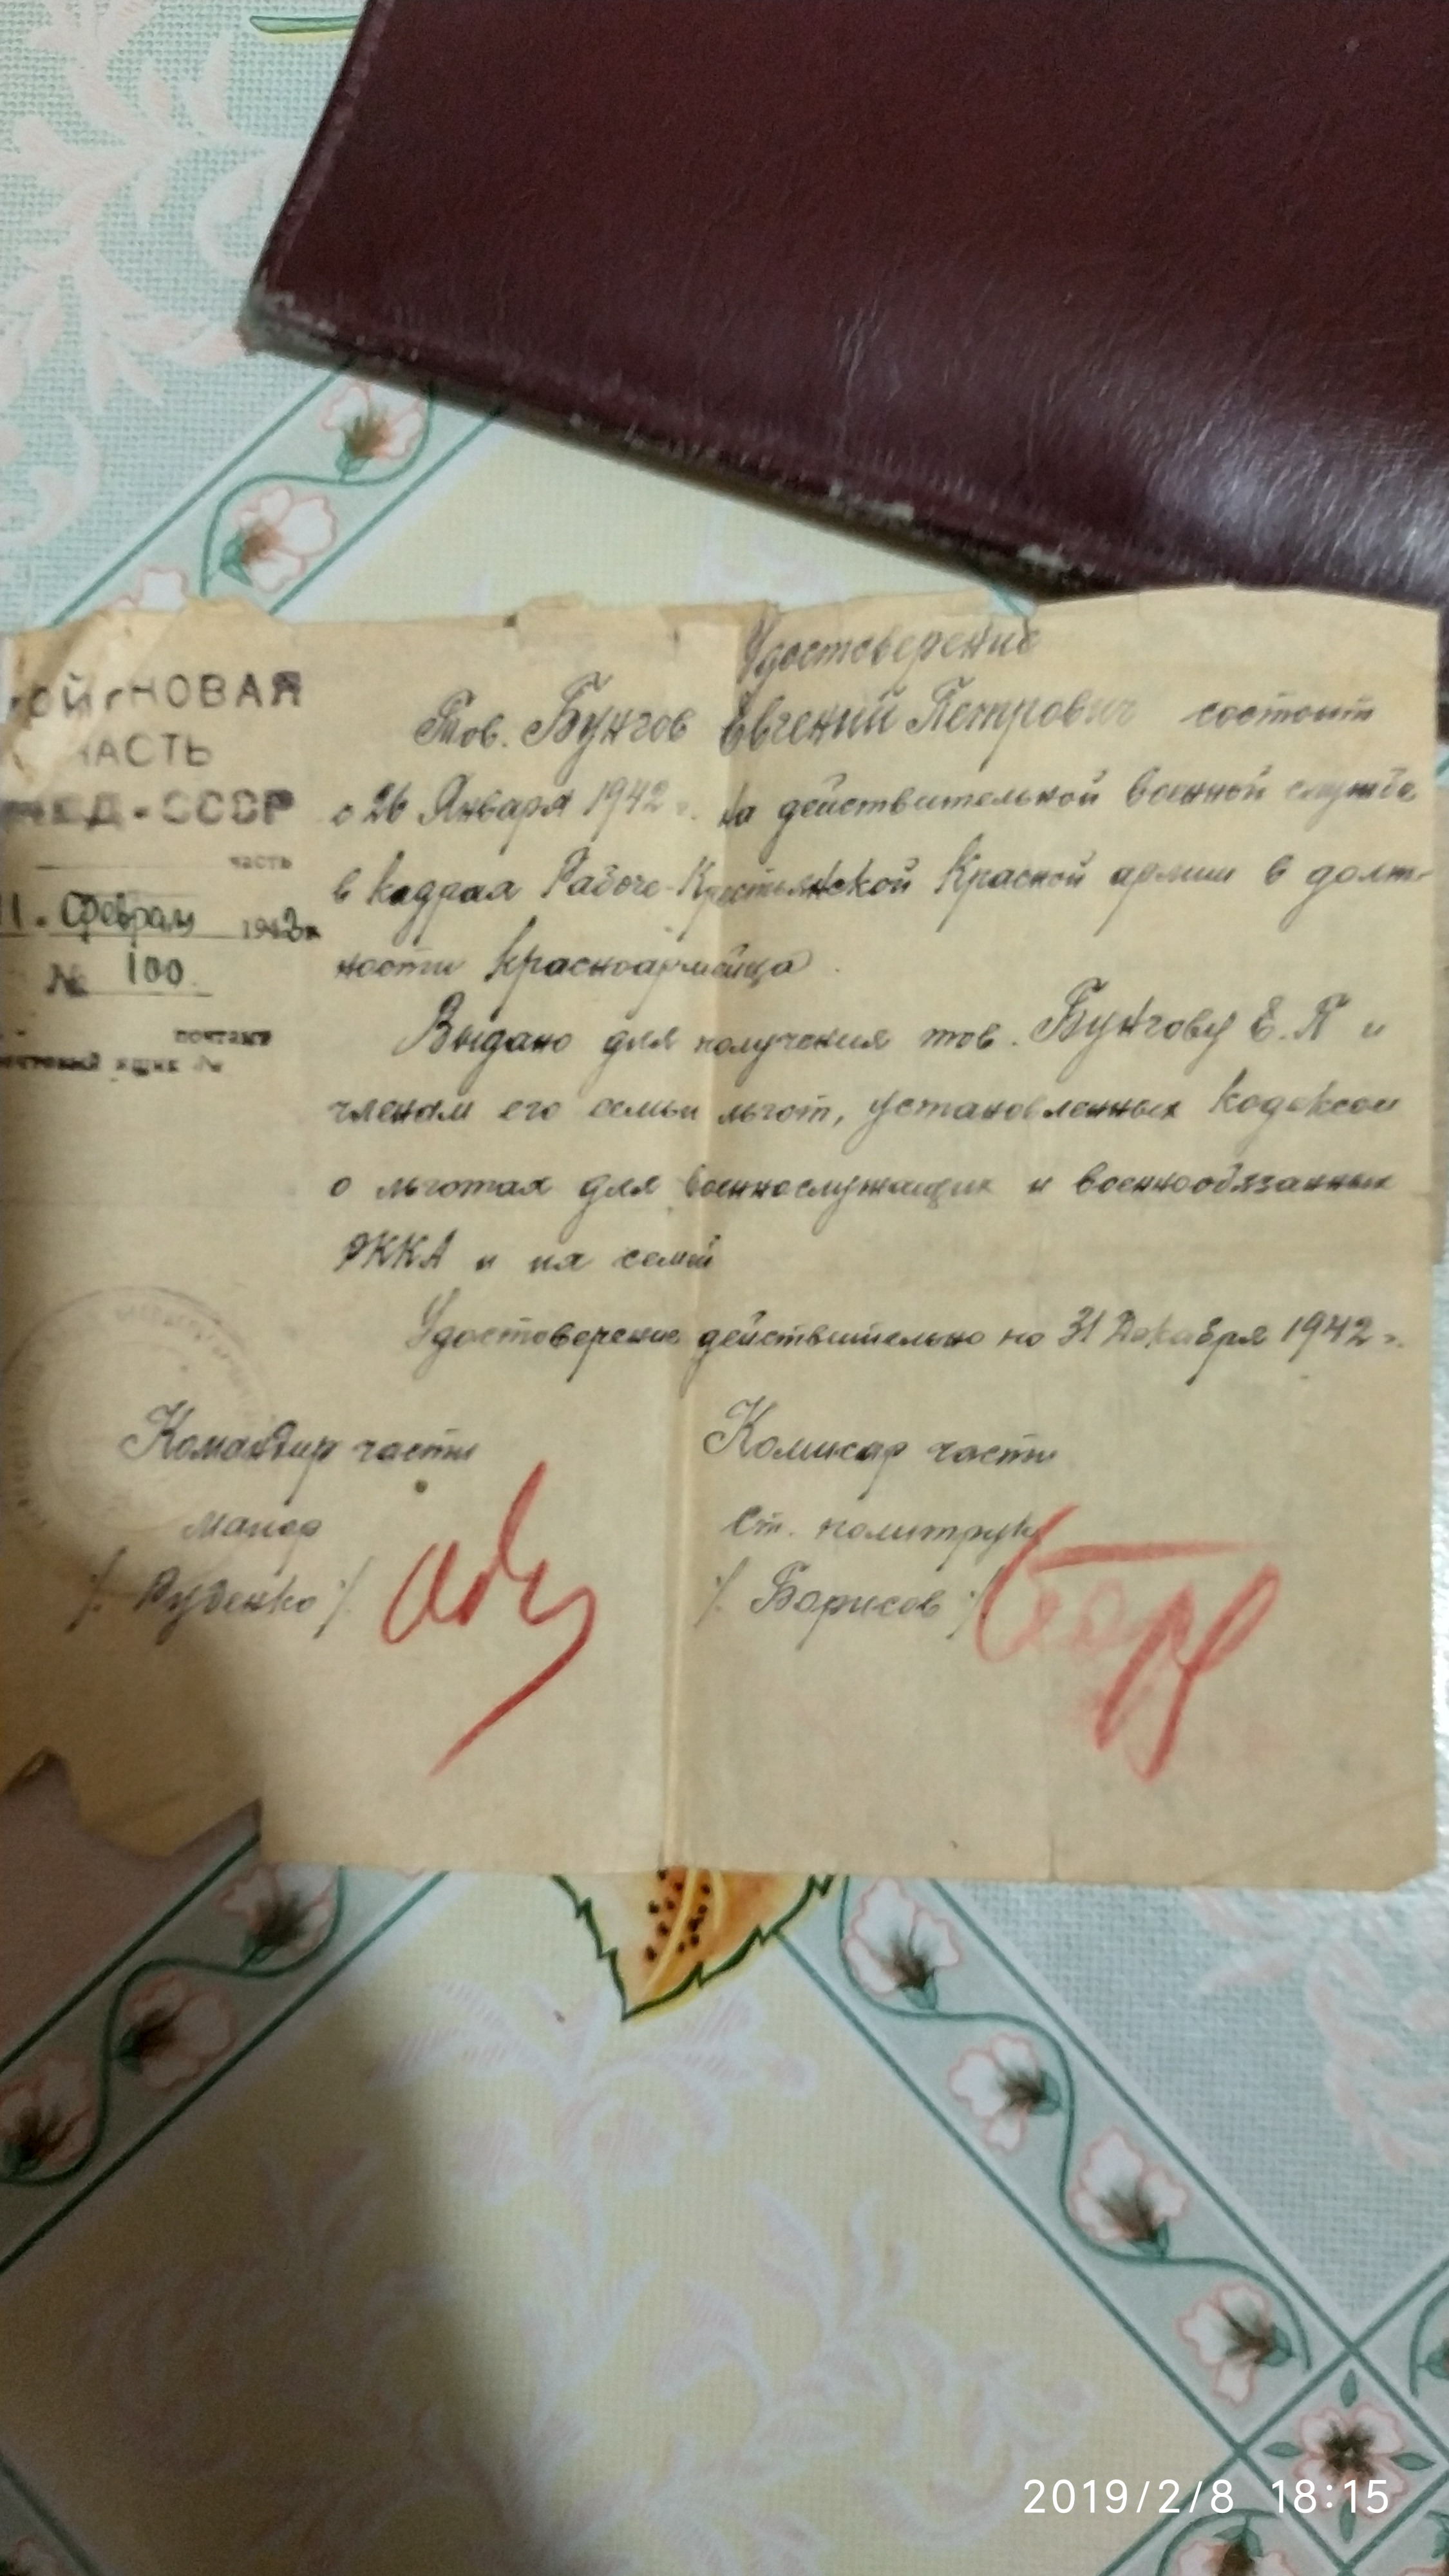 Удостоверение
НОВАЯ
ЧАСТЬ
НКВД-СССР
часть
11. Февраля 1942 г.
№ 100
почтамт
почтовый ящик №
Тов. Бунгов Евгений Петрович состоит
с 26 Января 1942 г. на действительной военной службе
в кадрах Рабоче-Крестьянской Красной армии в долж-
ности красноармейца.
Выдано для получения тов. Бунгову Е.П и
членам его семьи льгот, установленных кодексом
о льготах для военнослужащих и военнообязанных
РККА и их семей
Удостоверение действительно по 31 Декабря 1942 г.
Командир части
майор
/. Руденко ./
Комисар части
Ст. политрук
/. Борисов ./
2019/2/8 18:15